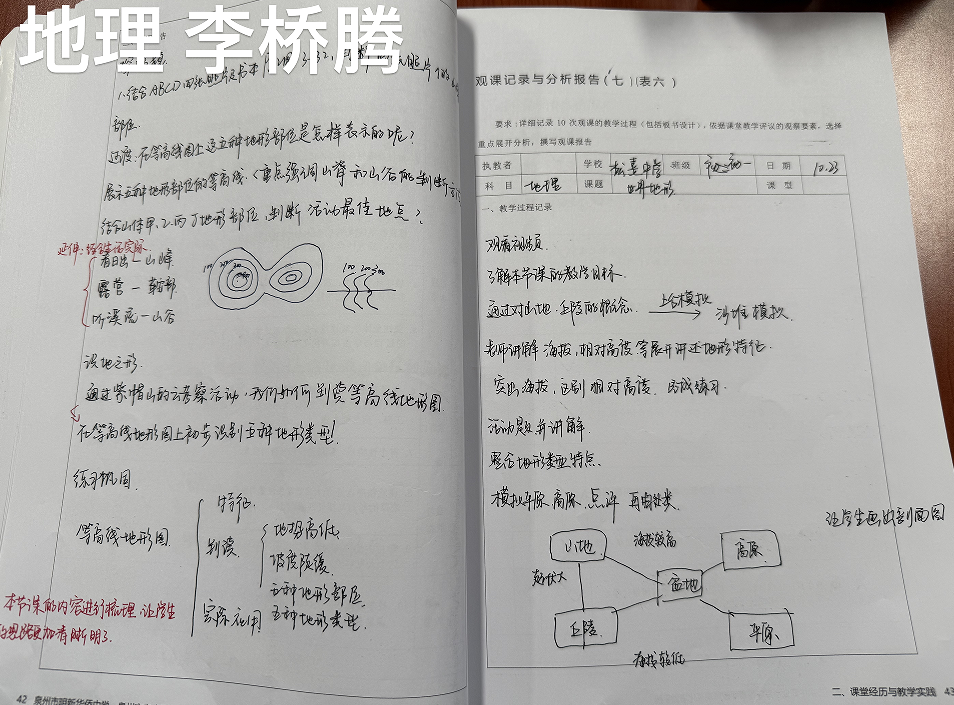 地理 李桥腾
1.结合ABCD四张照片及书本
部位.
过渡:在等高线图上这五种地形部位是怎样表示的呢?
展示五种地形部位的等高线.(重点强调山脊和山谷的判断方法
结合山体甲、乙、丙、丁地形部位,判断活动最佳地点?
延伸:
看日出—山峰
露营—鞍部
听溪流—山谷
100 200 300
100 200 300
说地之形.
通过紫帽山的云考察活动,我们如何判读等高线地形图
在等高线地形图上初步识别五种地形类型!
练习巩固.
等高线地形图
特征.
判读
地势高低.
坡度陡缓.
五种地形部位.
五种地形类型.
实际应用.
本节课的内容进行梳理,让学生
的思路更加清晰明了.
42 泉州市明新华侨中学
观课记录与分析报告(七)(表六)
要求:详细记录10次观课的教学过程(包括板书设计),依据课堂教学评议的观察要素,选择
重点展开分析,撰写观课报告
执教者 学校 班级 初一 日期 10.23
科目 地理 课题 世界地形 课型
一、教学过程记录
观看视频.
了解本节课的教学目标.
通过对山地、丘陵的概念. 上台模拟 沙堆模拟.
老师讲解海拔,相对高度等展开讲述地形特征.
突出海拔,区别相对高度. 完成练习.
活动题并讲解.
整合地形类型特点.
模拟平原 高原.点评
让学生画出剖面图
山地
海拔较高
高原
起伏大
盆地
丘陵
平原
海拔较低
二、课堂经历与教学实践 43